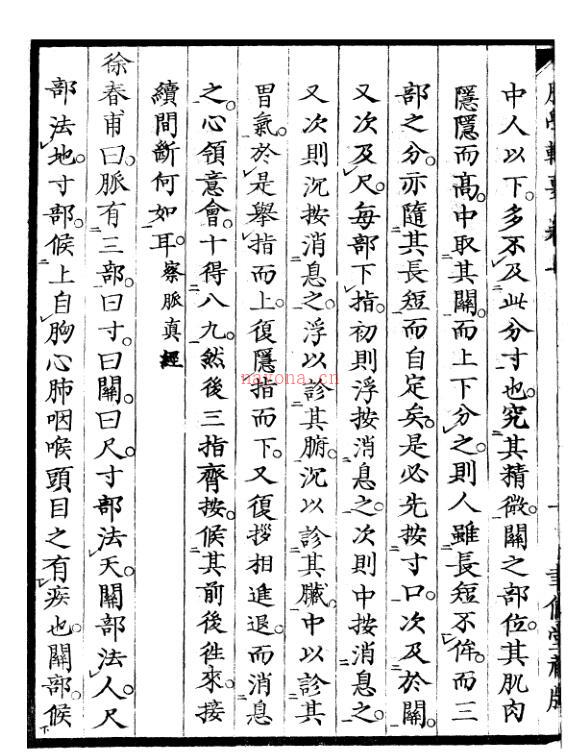 中人以下。多不及此分寸也。究其精微。關之部位。其肌肉
隱隱而高。中取其關。而上下分之。則人雖長短不侔。而三
部之分。亦隨其長短而自定矣。是必先按寸口。次及於關。
又次及尺。每部下指。初則浮按消息之。次則中按消息之。
又次則沉按消息之。浮以診其腑。沉以診其臟。中以診其
胃氣。於是舉指而上。復隱指而下。又復挨相進退。而消息
之。心領意會。十得八九。然後三指齊按。候其前後往來。接
續間斷何如耳。察脈真經
徐春甫曰。脈有三部。曰寸。曰關。曰尺。寸部法天。關部法人。尺
部法地。寸部。候上自胸心肺咽喉頭目之有疾也。關部。候
nayona.cn